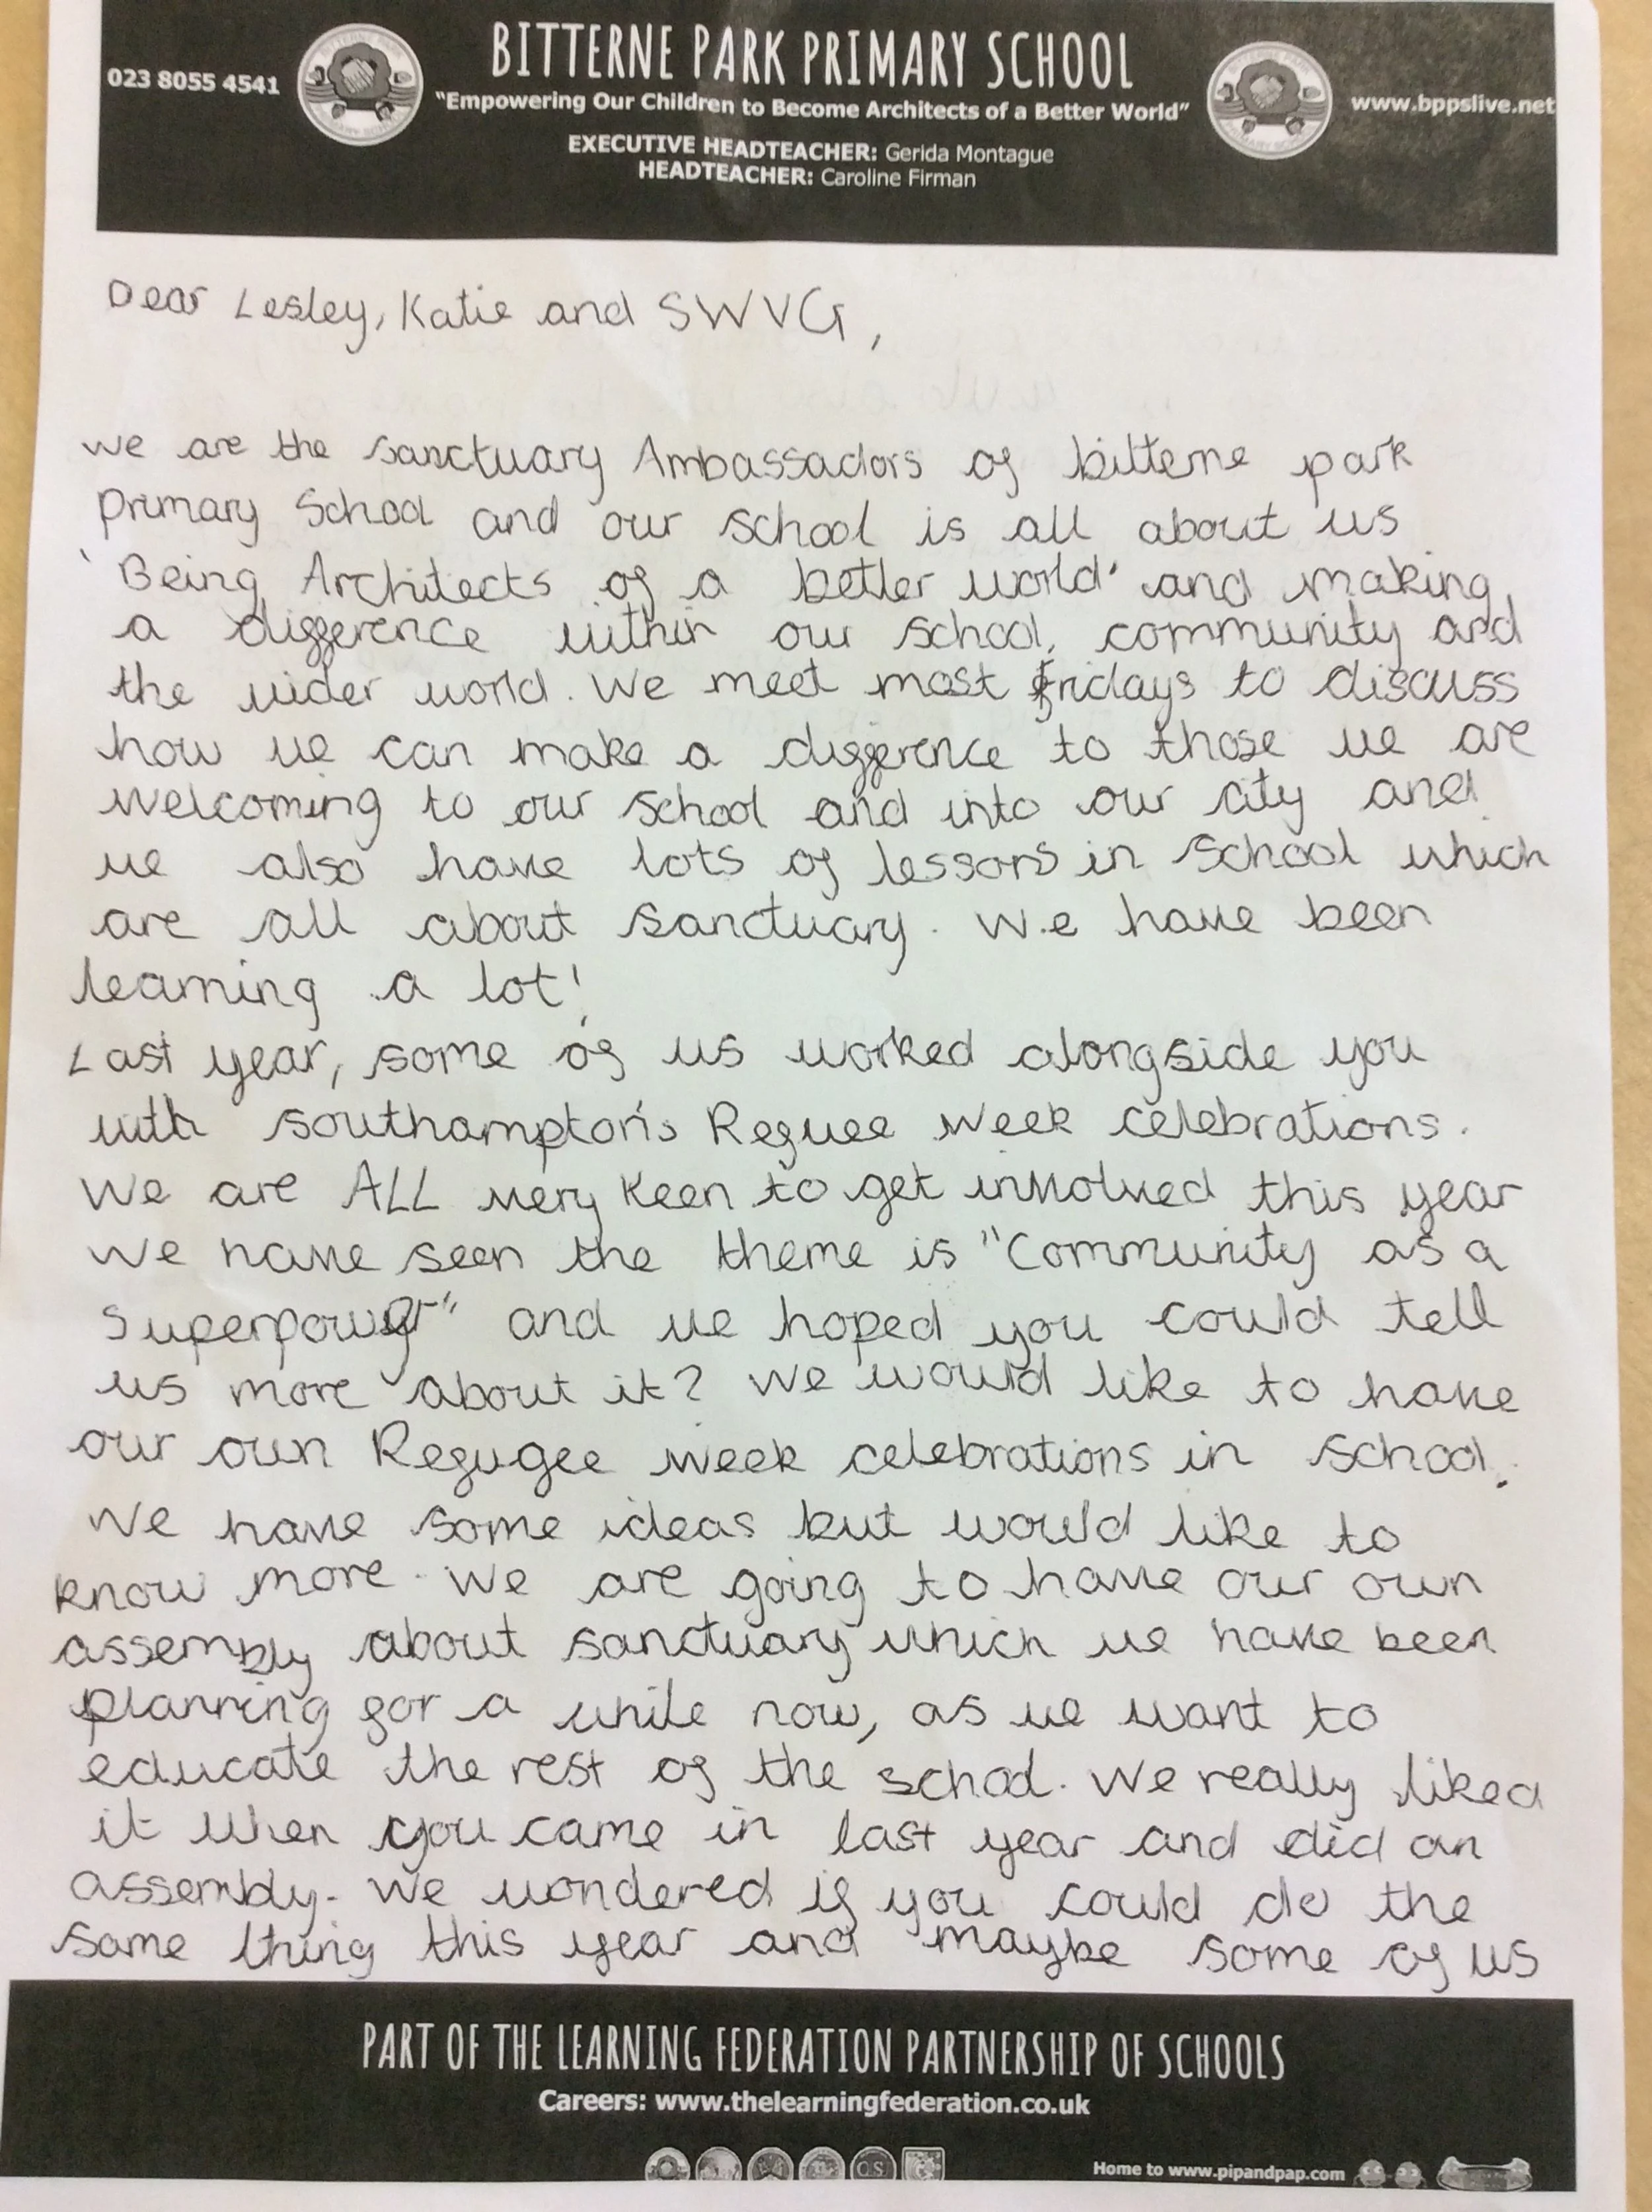 BITTERNE PARK PRIMARY SCHOOL
023 8055 4541
"Empowering Our Children to Become Architects of a Better World"
www.bppslive.net
EXECUTIVE HEADTEACHER: Gerida Montague
HEADTEACHER: Caroline Firman
Dear Lesley, Katie and SWVG,
we are the sanctuary Ambassadors of bitterne park
primary School and our school is all about us
'Being Architects of a better world' and making
a difference within our school, community and
the wider world. We meet most fridays to discuss
how we can make a difference to those we are
welcoming to our school and into our city and
we also have lots of lessons in school which
are all about sanctuary. We have been
learning a lot!
Last year, some of us worked alongside you
with southampton's Refuee week celebrations.
We are ALL very keen to get involved this year
we have seen the theme is "Community as a
superpower" and we hoped you could tell
us more about it? We would like to have
our own Refugee week celebrations in school.
We have some ideas but would like to
know more. We are going to have our own
assembly about sanctuary which we have been
planning for a while now, as we want to
educate the rest of the school. We really liked
it when you came in last year and did an
assembly. We wondered if you could do the
same thing this year and maybe some of us
PART OF THE LEARNING FEDERATION PARTNERSHIP OF SCHOOLS
Careers: www.thelearningfederation.co.uk
Home to www.pipandpap.com